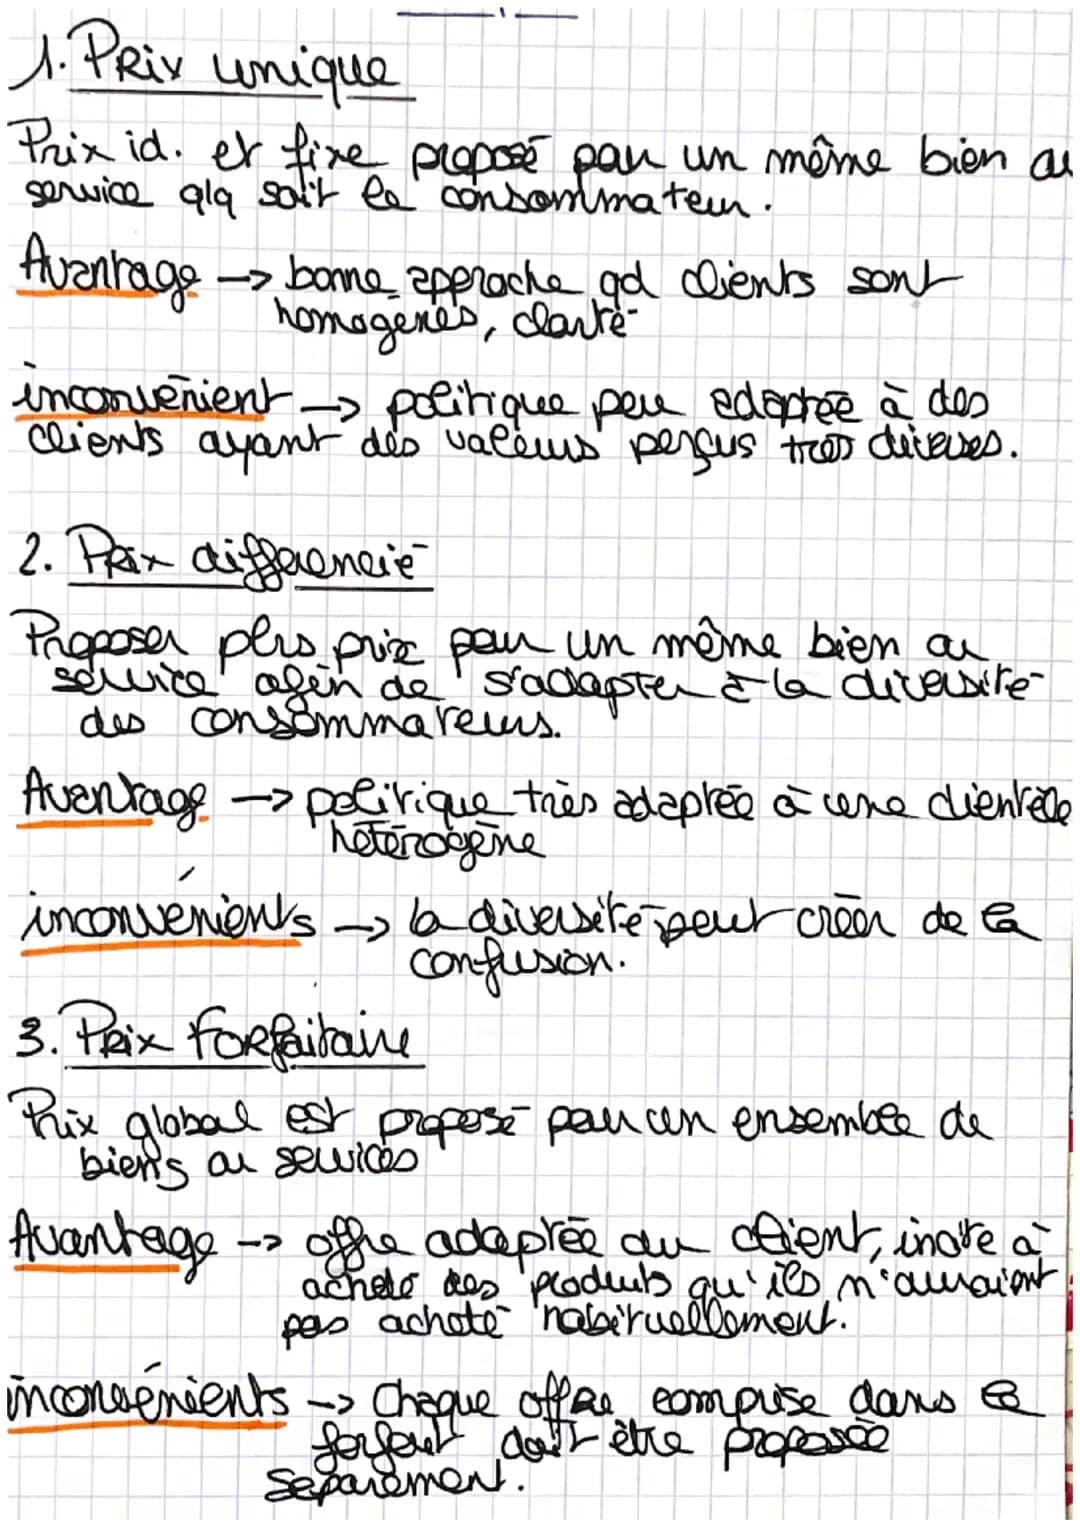 1. Prix unique
Prix id. et fixe proposé pour un même bien ou
service qlq soit le consommateur.
Avantage -> bonne approche qd clients sont
homogènes, clarté
inconvénient -> politique peu adaptée à des
clients ayant des valeurs perçus très diverses.
2. Prix différencié
Proposer plrs prix pour un même bien ou
service afin de s'adapter à la diversité
des consommateurs.
Avantage -> politique très adaptée à une clientèle
hétérogène
inconvénients -> la diversité peut créer de la
confusion.
3. Prix forfaitaire
Prix global est proposé pour un ensemble de
biens ou services
Avantage -> offre adaptée au client, incite à
acheté des produits qu'ils n'auraient
pas acheté habituellement.
inconvénients -> Chaque offre comprise dans le
forfait doit être proposée
séparément.